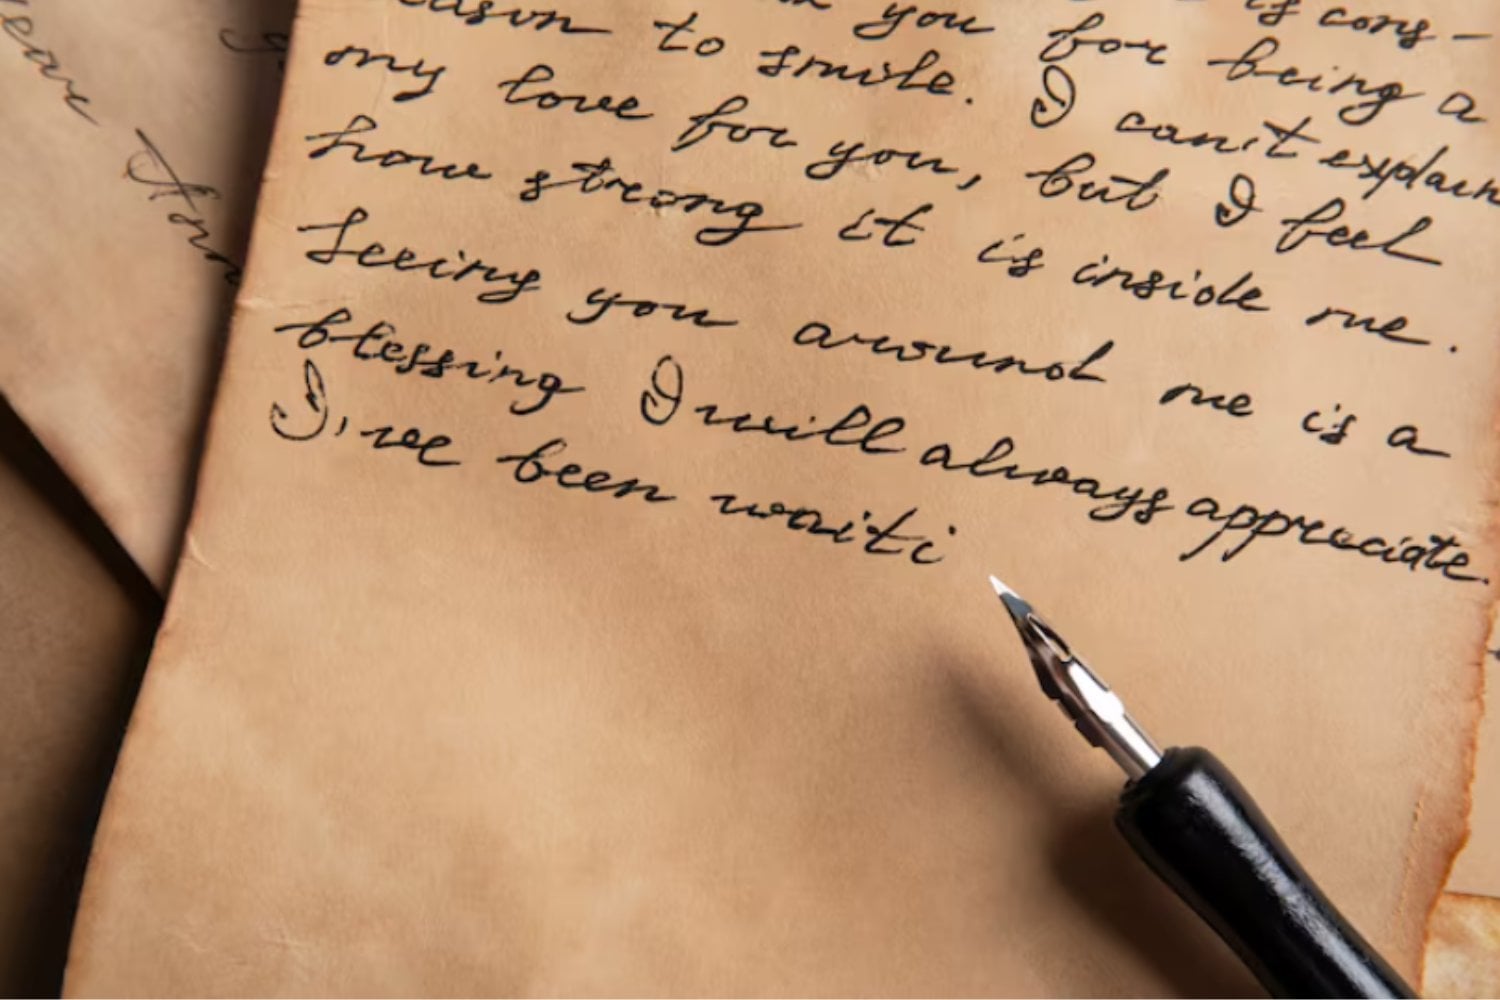 is cons-
you for being a
reason to smile. I can't explain
my love for you, but I feel
how strong it is inside me.
Seeing you around me is a
blessing I will always appreciate.
I've been waiti
Dear Ann